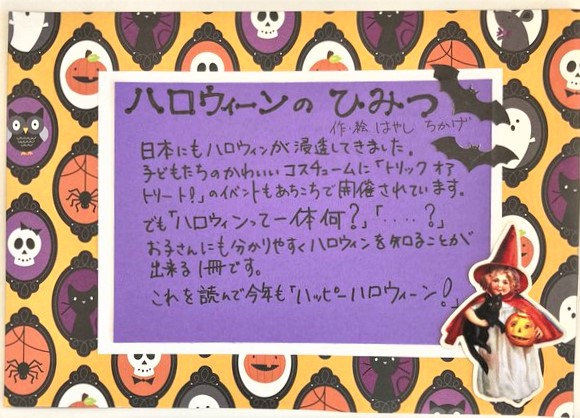 ハロウィーンの ひみつ
作・絵 はやし ちかげ
日本にもハロウィンが浸透してきました。
子どもたちのかわいいコスチュームに「トリック オア
トリート!」のイベントもあちこちで開催されています。
でも「ハロウィンって一体何?」「・・・・?」
お子さんにも分かりやすくハロウィンを知ることが
出来る1冊です。
これを読んで今年も「ハッピーハロウィーン!」